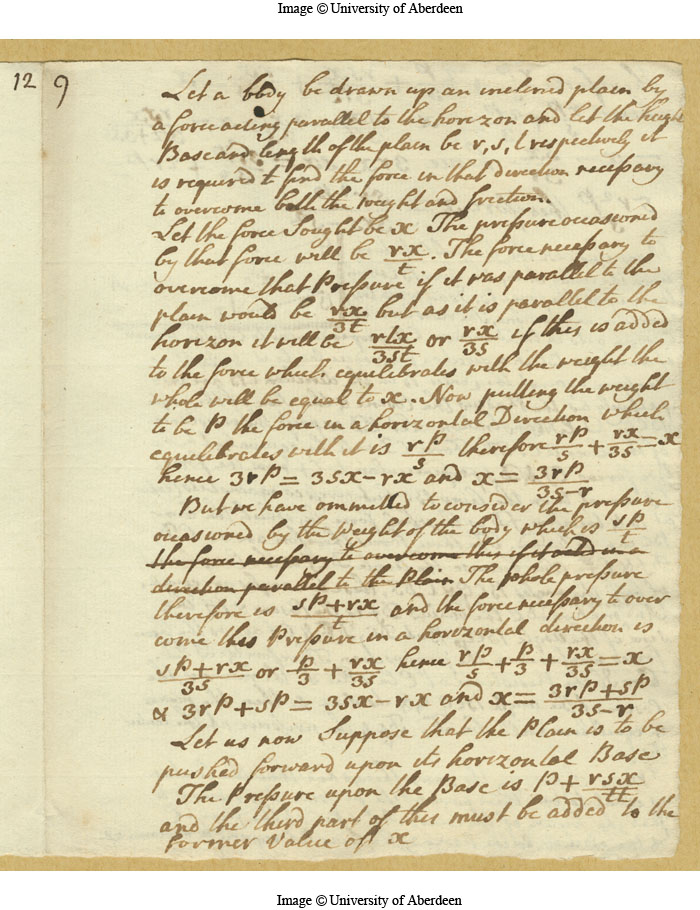 Image © University of Aberdeen
12 9
Let a body be drawn up an inclined plain by
a force acting parallel to the horizon and let the height
Base and length of the plain be r, s, t respectively it
is required to find the force in that direction necessary
to overcome both the weight and friction.
Let the force Sought be x The pressure occasioned
by that force will be rx/t. The force necessary to
overcome that Pressure if it was parallel to the
plain would be rx/3t but as it is parallel to the
horizon it will be rtx/3st or rx/3s if this is added
to the force which equilibrates with the weight the
whole will be equal to x. Now putting the weight
to be P the force in a horizontal Direction which
equilibrates with it is rP/s therefore rP/s + rx/3s = x
hence 3rP = 3sx - rx and x = 3rP/3s-r
But we have ommitted to consider the pressure
occasioned by the Weight of the body which is sP/t
the force necessary to overcome this if it acted in a
direction parallel to the Plain The whole pressure
therefore is sP+rx/t and the force necessary to over
come this Pressure in a horizontal direction is
sP+rx/3s or P/3 + rx/3s hence rP/s + P/3 + rx/3s = x
& 3rP+sP = 3sx - rx and x = 3rP+sP/3s-r
Let us now Suppose that the Plain is to be
pushed forward upon its horizontal Base
The Pressure upon the Base is P + rsx/tt
and the third part of this must be added to the
former Value of x
Image © University of Aberdeen